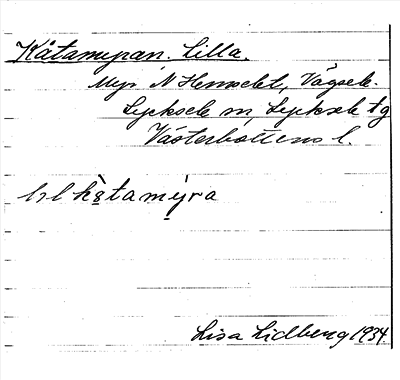 Kåtamyran. Lilla.
Myr N Hemselet, Vägsele.
Lycksele sn, Lycksele tg
Västerbottens l.
lsl kåtamýra
Lisa Lidberg 1934.